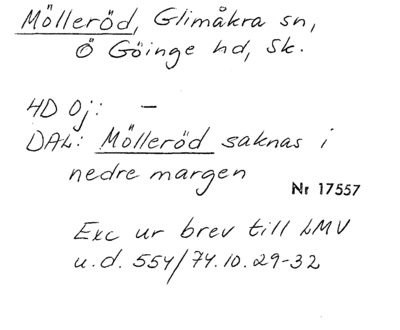 Mölleröd, Glimåkra sn,
Ö Göinge hd, Sk.
HD Oj: —
DAL: Mölleröd saknas i
nedre margen
Nr 17557
Exc ur brev till LMV
u.d. 554/74.10.29-32